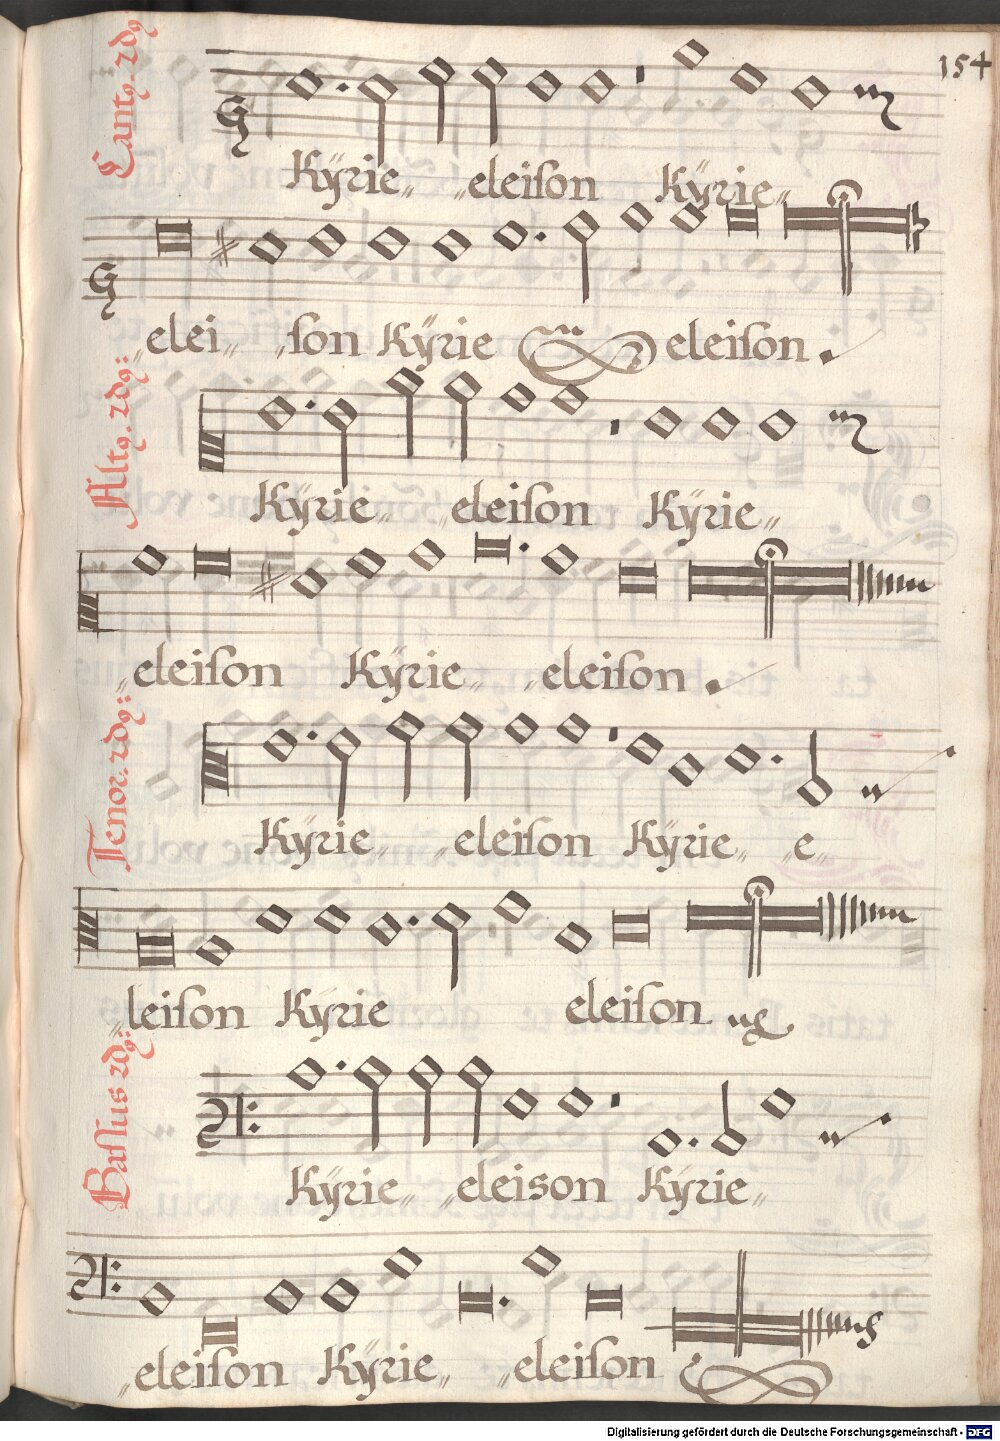 154
Cantꝰ. 2dꝰ
Kÿrie eleiſon Kÿrie
elei ſon Kÿrie eleiſon.
Altꝰ. 2dꝰ:
Kÿrie eleiſon Kÿrie
eleiſon Kÿrie eleiſon.
Tenor. 2dꝰ:
Kÿrie eleiſon Kÿrie e
leiſon Kÿrie eleiſon
Baſſus 2dꝰ:
Kÿrie eleison Kÿrie
eleiſon Kÿrie eleiſon
Digitalisierung gefördert durch die Deutsche Forschungsgemeinschaft - DFG